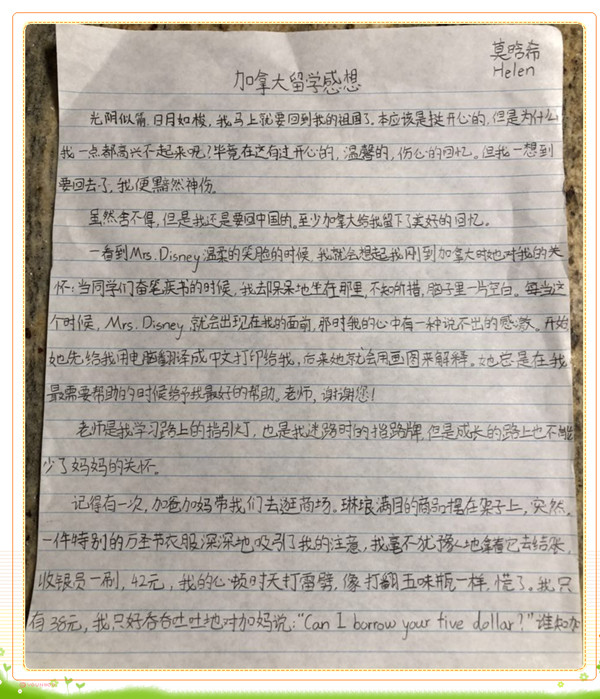 莫晗希
Helen
加拿大留学感想
光阴似箭,日月如梭,我马上就要回到我的祖国了。本应该是挺开心的,但是为什么
我一点都高兴不起来呢?毕竟在这有过开心的,温馨的,伤心的回忆。但我一想到
要回去了,我便黯然神伤。
虽然舍不得,但是我还是要回中国的。至少加拿大给我留下了美好的回忆。
一看到Mrs. Disney温柔的笑脸的时候,我就会想起我刚到加拿大时她对我的关
怀:当同学们奋笔疾书的时候,我却呆呆地坐在那里,不知所措,脑子里一片空白。每当这
个时候,Mrs. Disney 就会出现在我的面前,那时我的心中有一种说不出的感激。开始
她先给我用电脑翻译成中文打印给我,后来她就会用画图来解释。她总是在我
最需要帮助的时候给予我最好的帮助。老师,谢谢您!
老师是我学习路上的指引灯,也是我迷路时的指路牌,但是成长的路上也不能
少了妈妈的关怀。
记得有一次,加爸加妈带我们去逛商场。琳琅满目的商品摆在架子上,突然,
一件特别的万圣节衣服深深地吸引了我的注意,我毫不犹豫地拿着它去结账,
收银员一刷,42元,我的心顿时天打雷劈,像打翻五味瓶一样,慌了。我只
有38元,我只好吞吞吐吐地对加妈说:"Can I borrow your five dollar?"谁知加